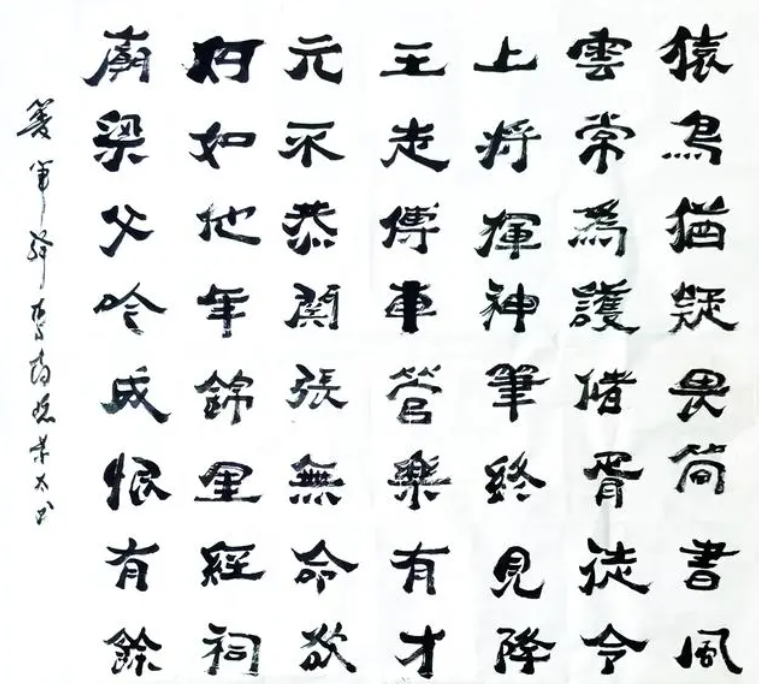 猿鳥猶疑畏简書風
雲常為護儲胥徒令
上将揮神筆終見降
王走傳車管樂有才
元不恭関張無命欲
何如他年錦里經祠
廟梁父吟成恨有餘
籌筆驛李商隐